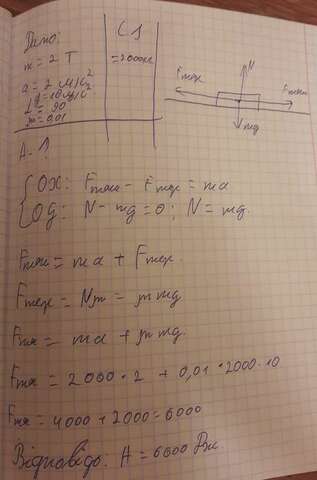 Дано: СІ
m = 2 т = 2000кг
a = 2 м/с²
g = 10 м/с²
L = 90
μ = 0,01
A - ?
N
Fтер Fтяги
mg
OX: Fтяги - Fтер = ma
Oy: N - mg = 0; N = mg.
Fтяги = ma + Fтер.
Fтер = Nμ = μmg
Fтя = ma + μmg.
Fтя = 2000 · 2 + 0,01 · 2000 · 10
Fтя = 4000 + 2000 = 6000
Відповідь. A = 6000 Дж.